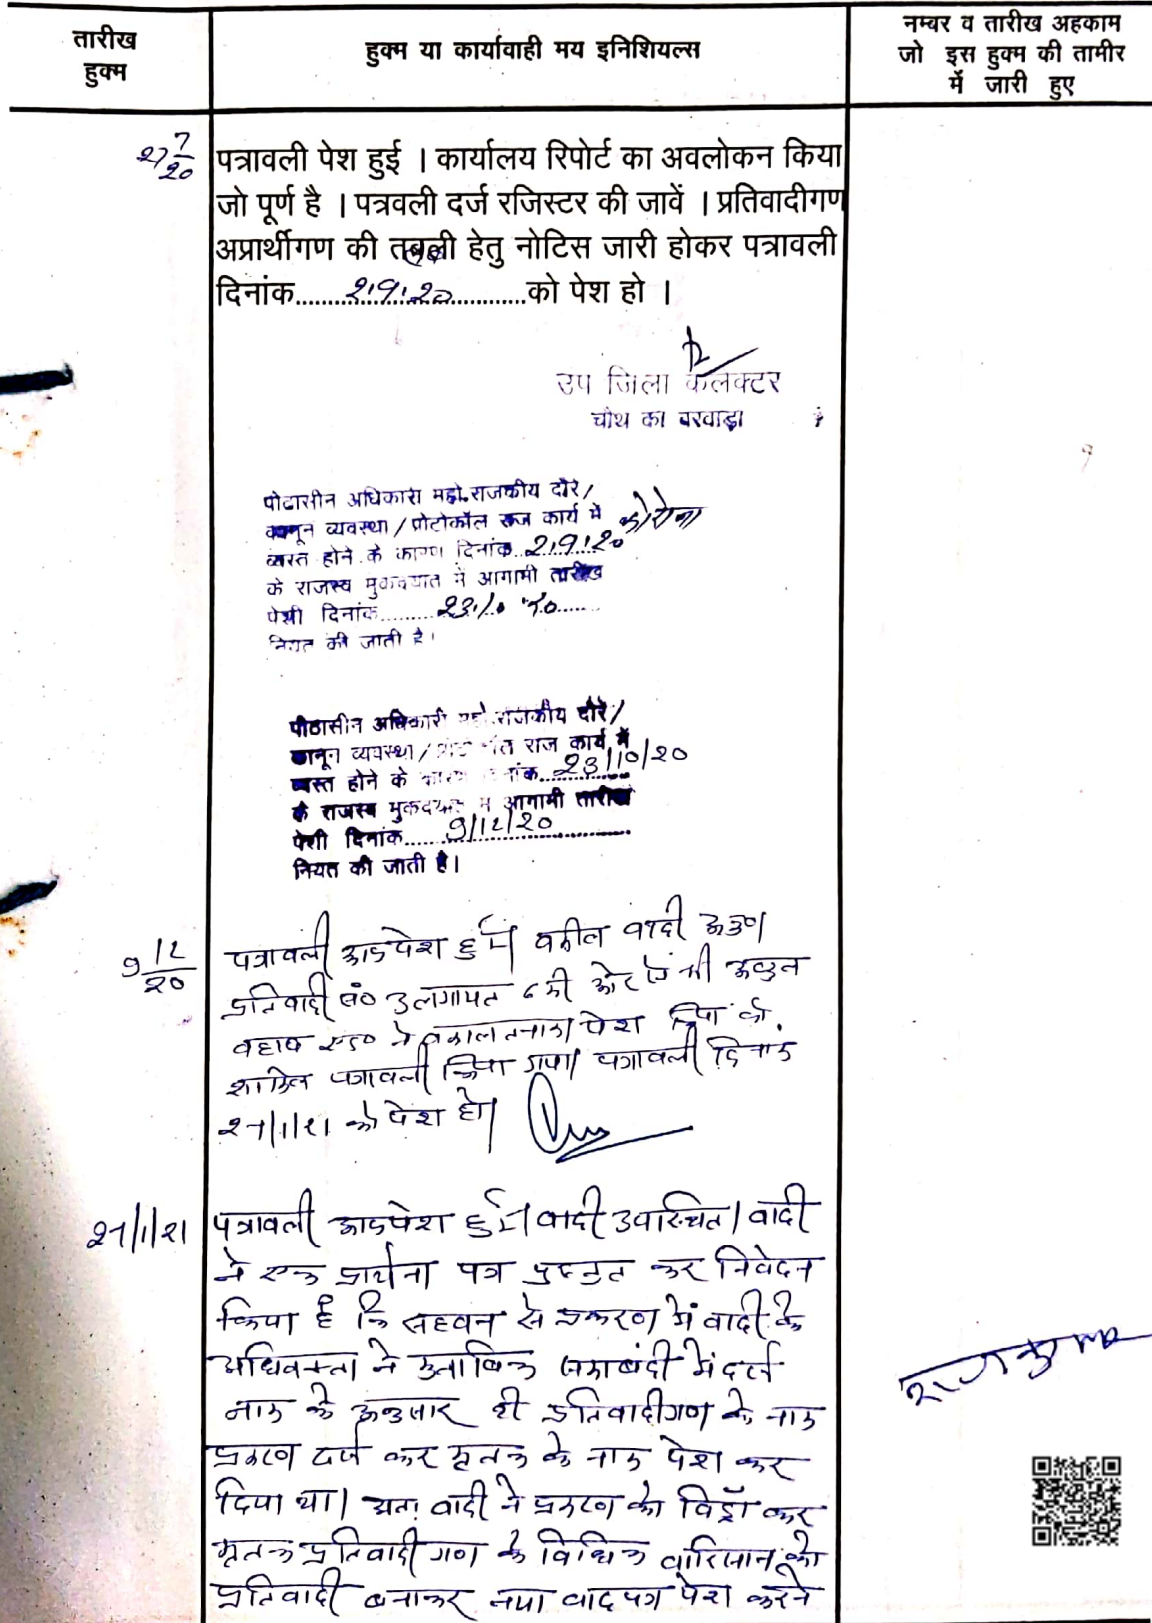 तारीख
हुक्म
हुक्म या कार्यावाही मय इनिशियल्स
नम्बर व तारीख अहकाम
जो इस हुक्म की तामीर
में जारी हुए
27/7/20
पत्रावली पेश हुई । कार्यालय रिपोर्ट का अवलोकन किया
जो पूर्ण है । पत्रवली दर्ज रजिस्टर की जावें । प्रतिवादीगण
अप्रार्थीगण की तबली हेतु नोटिस जारी होकर पत्रावली
दिनांक......2.9.20......को पेश हो ।
उप जिला कलक्टर
चौथ का बरवाड़ा
पीठासीन अधिकारी महो.राजकीय दौरे/
कानून व्यवस्था/प्रोटोकॉल राज कार्य में कोरोना
व्यस्त होने के कारण दिनांक..2.9.20
के राजस्व मुकदमात में आगामी तारीख
पेशी दिनांक.......23.10.20......
नियत की जाती है।
पीठासीन अधिकारी महो.राजकीय दौरे/
कानून व्यवस्था/ राज कार्य में
व्यस्त होने के कारण दिनांक..23/10/20
के राजस्व मुकदमात में आगामी तारीख
पेशी दिनांक....9/12/20......
नियत की जाती है।
9/12/20
पत्रावली आज पेश हुई। वकील वादी
प्रतिवादी सं० 3 लगायत 6 की ओर से श्री अब्दुल
वहाब एड० ने वकालतनामा पेश किया जो
शामिल पत्रावली किया गया। पत्रावली दिनांक
27/1/21 को पेश हो।
27/1/21
पत्रावली आज पेश हुई। वादी उपस्थित। वादी
ने एक प्रार्थना पत्र प्रस्तुत कर निवेदन
किया है कि सहवन से प्रकरण में वादी के
अधिवक्ता ने मुताबिक जमाबंदी में दर्ज
नाम के अनुसार ही प्रतिवादीगण के नाम
प्रकरण दर्ज कर मृतक के नाम पेश कर
दिया था। अतः वादी ने प्रकरण को विड्रॉ कर
मृतक प्रतिवादी गण के विधिक वारिसान को
प्रतिवादी बनाकर नया वाद पत्र पेश करने